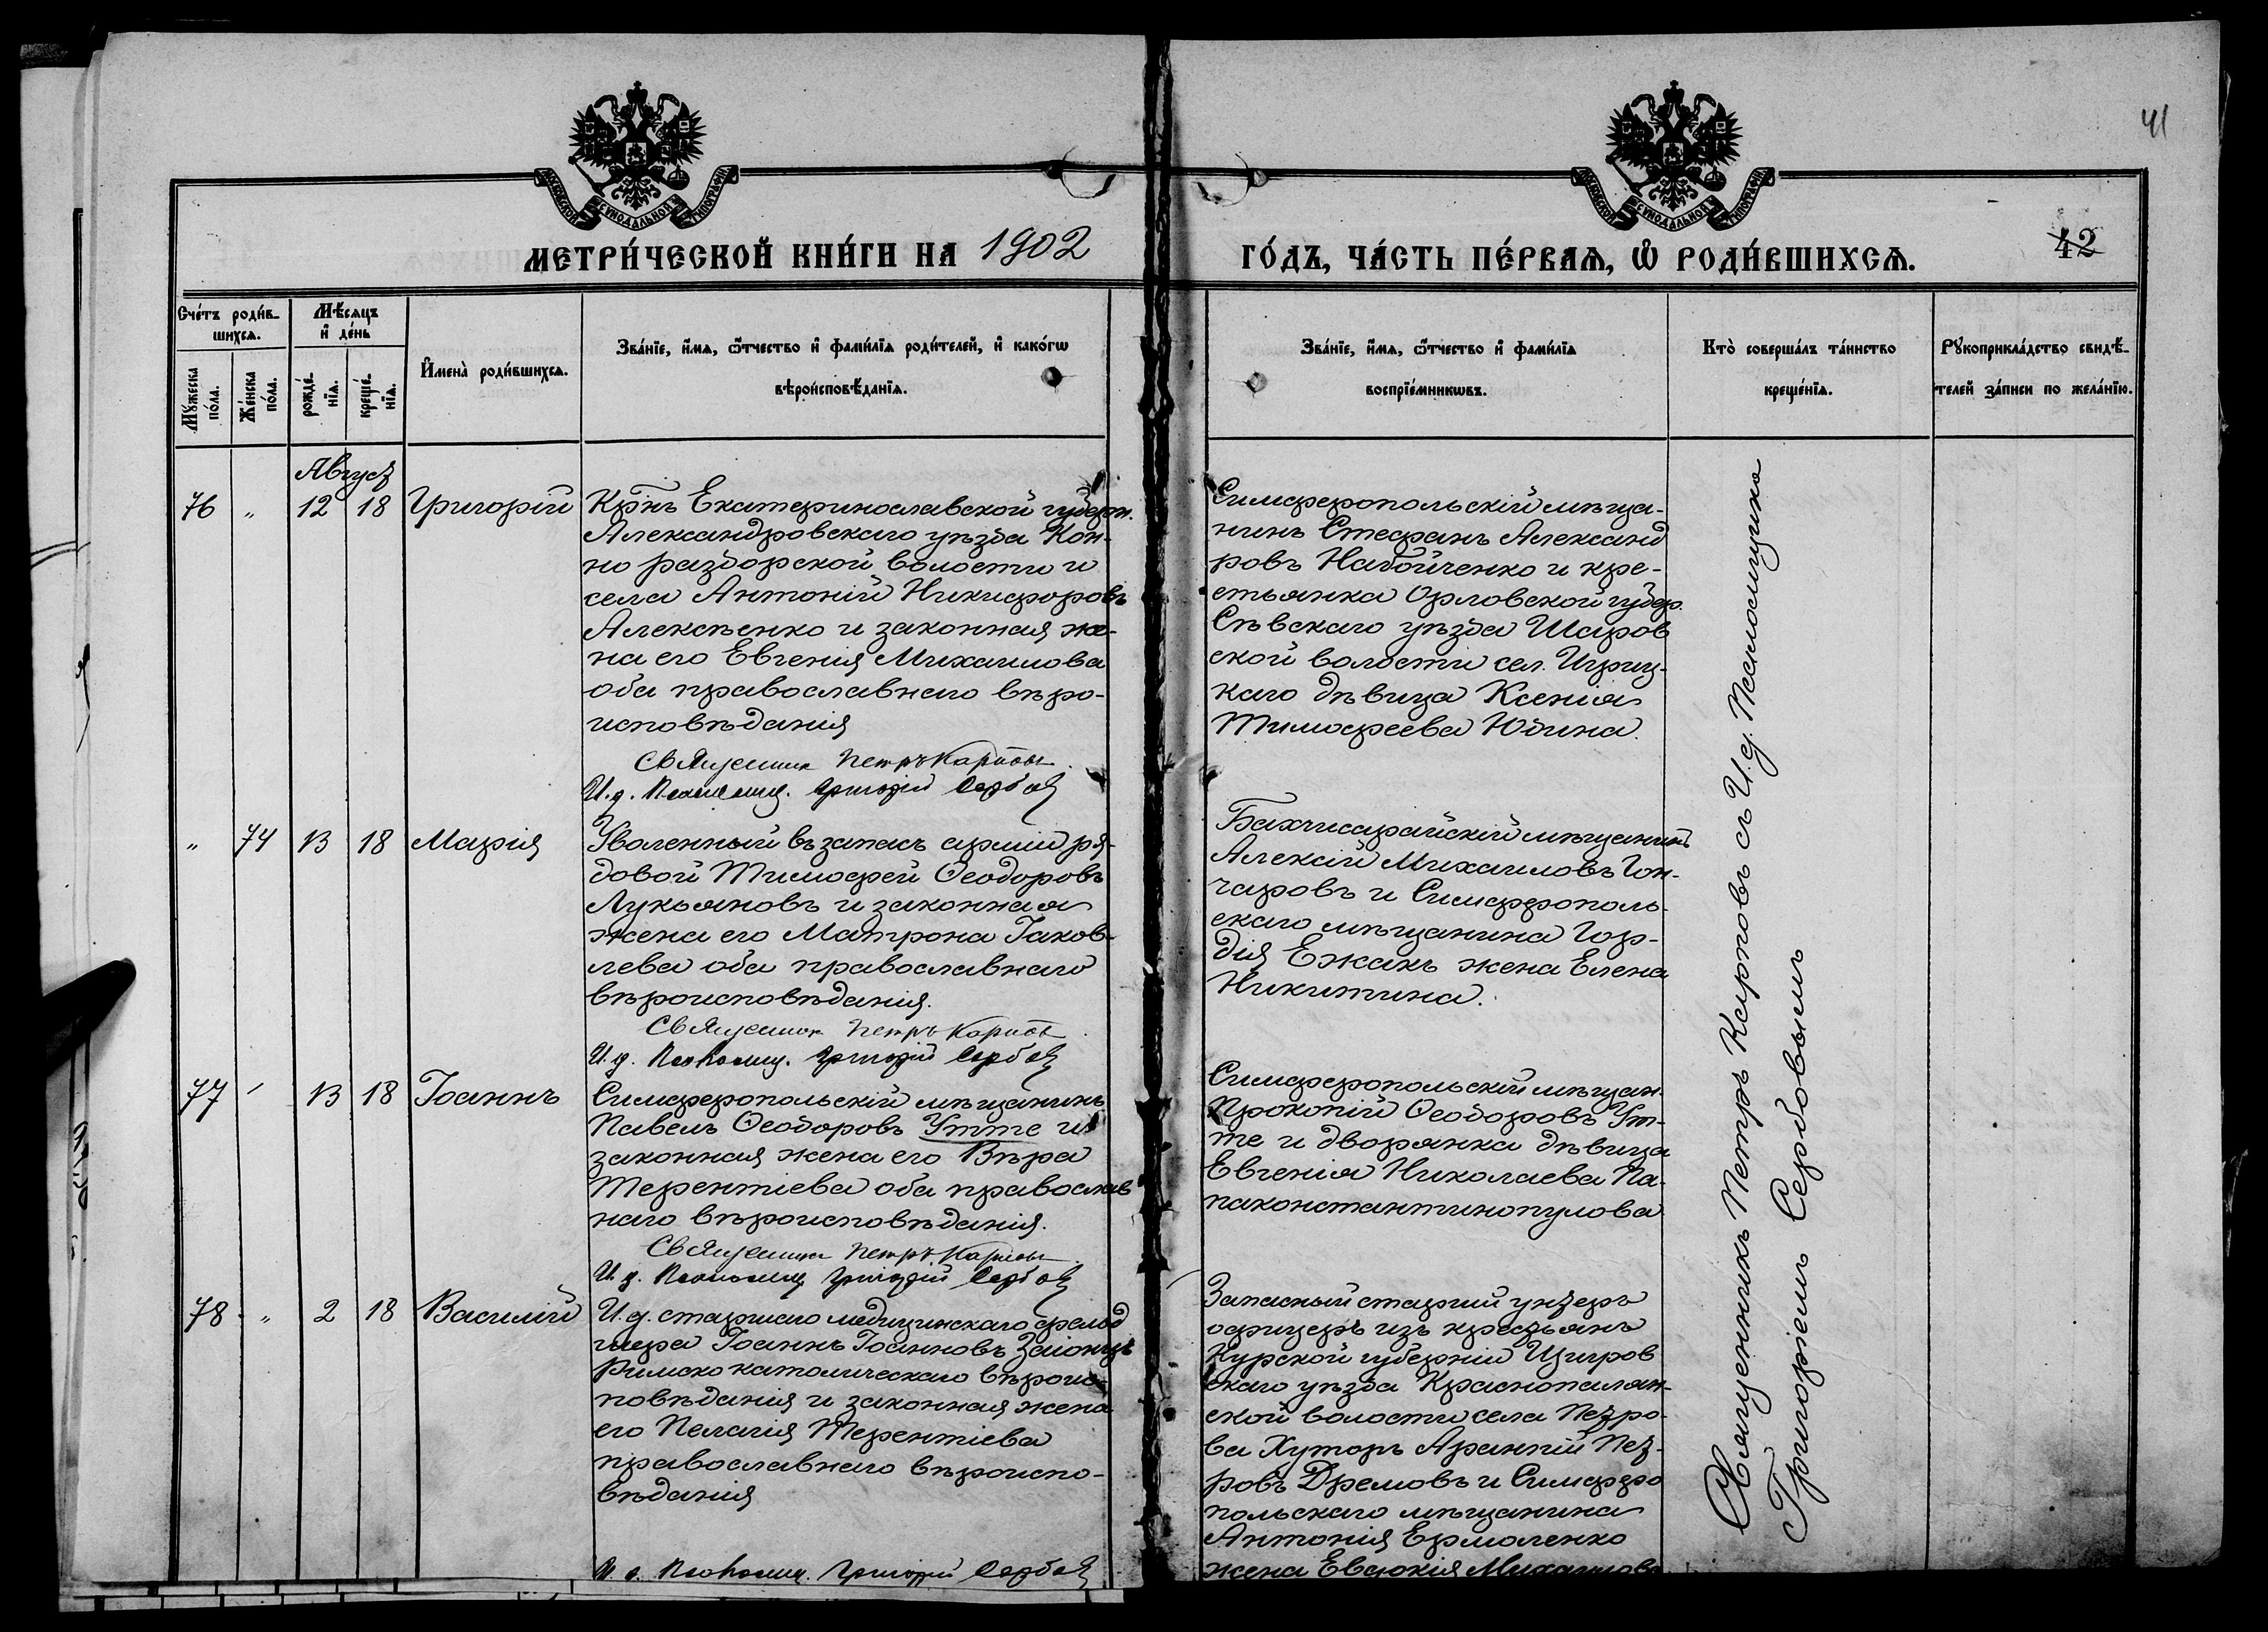 41
МОСКОВСКОЙ СУНОДАЛЬНОЙ ТИПОГРАФІИ
МОСКОВСКОЙ СУНОДАЛЬНОЙ ТИПОГРАФІИ
МЕТРИ́ЧЕСКОЙ КНИ́ГИ НА 1902
ГО́ДЪ, ЧА́СТЬ ПЕ́РВАѦ, Ѡ РОДИ́ВШИХСѦ.
42
Сче́тъ роди́в-
шихсѧ.
Мѣ́сяцъ
и де́нь
Мꙋ́жеска
по́ла.
Же́нска
по́ла.
рожде́-
нїѧ.
креще́-
нїѧ.
Имена̀ роди́вшихсѧ.
Зва́нїе, и́мѧ, ѻ́тчество и фами́лїѧ роди́телей, и како́гѡ
вѣроисповѣ́данїѧ.
Зва́нїе, и́мѧ, ѻ́тчество и фами́лїѧ
воспрїе́мникѡвъ.
Кто̀ соверша́лъ та́инство
креще́нїѧ.
Рꙋкоприкла́дство свидѣ́-
телей за́писи по жела́нїю.
Августъ
76 " 12 18 Григорій
Крнъ Екатеринославской губерн.
Александровскаго уѣзда Кон-
но раздорской волости и
села Антоній Никифоровъ
Алексѣенко и законная же-
на его Евгенія Михаилова
оба православнаго вѣро-
исповѣданія
Священникъ Петръ Карповъ
И. д. Псаломщ. Григорій Сербовъ
Симферопольскій мѣща-
нинъ Стефанъ Александ
ровъ Набойченко и кре-
стьянка Орловской губер.
Сѣвскаго уѣзда Шаров
ской волости сел. Игриц-
каго дѣвица Ксенія
Тимофеева Юдина.
" 74 13 18 Марія
Уволенный въ запасъ арміи ря-
довой Тимофей Ѳеодоровъ
Лукьяновъ и законная
жена его Матрона Іаков-
лева оба православнаго
вѣроисповѣданія.
Священникъ Петръ Карповъ
И. д. Псаломщ. Григорій Сербовъ
Бахчисарайскій мѣщанинъ
Алексій Михаиловъ Гон-
чаровъ и Симферополь-
скаго мѣщанина Гор-
дія Ежакъ жена Елена
Никитина.
77 " 13 18 Іоаннъ
Симферопольскій мѣщанинъ
Павелъ Ѳеодоровъ Утте и
законная жена его Вѣра
Терентіева оба православ
наго вѣроисповѣданія.
Священникъ Петръ Карповъ
И. д. Псаломщ Григорій Сербовъ
Симферопольскій мѣщан.
Прокопій Ѳеодоровъ Ут-
те и дворянка дѣвица
Евгенія Николаева Па-
паконстантинопулова
78 " 2 18 Василій
И. д. старшаго медицинскаго фельд
шера Іоаннъ Іоанновъ Заіонцъ
Римско католическаго вѣроис-
повѣданія и законная жена
его Пелагія Терентіева
православнаго вѣроиспо-
вѣданія
И д. Псаломщ. Григорій Сербовъ
Запасный старшій унтеръ
офицеръ изъ крестьянъ
Курской губерніи Щигров
скаго уѣзда Краснополян-
ской волости села Петро-
ва Хуторъ Арантій Пет-
ровъ Дремовъ и Симферо
польскаго мѣщанина
Антонія Ермоленко
жена Евдокія Михаилова
Священникъ Петръ Карповъ съ И. д. Псаломщика
Григоріемъ Сербовымъ